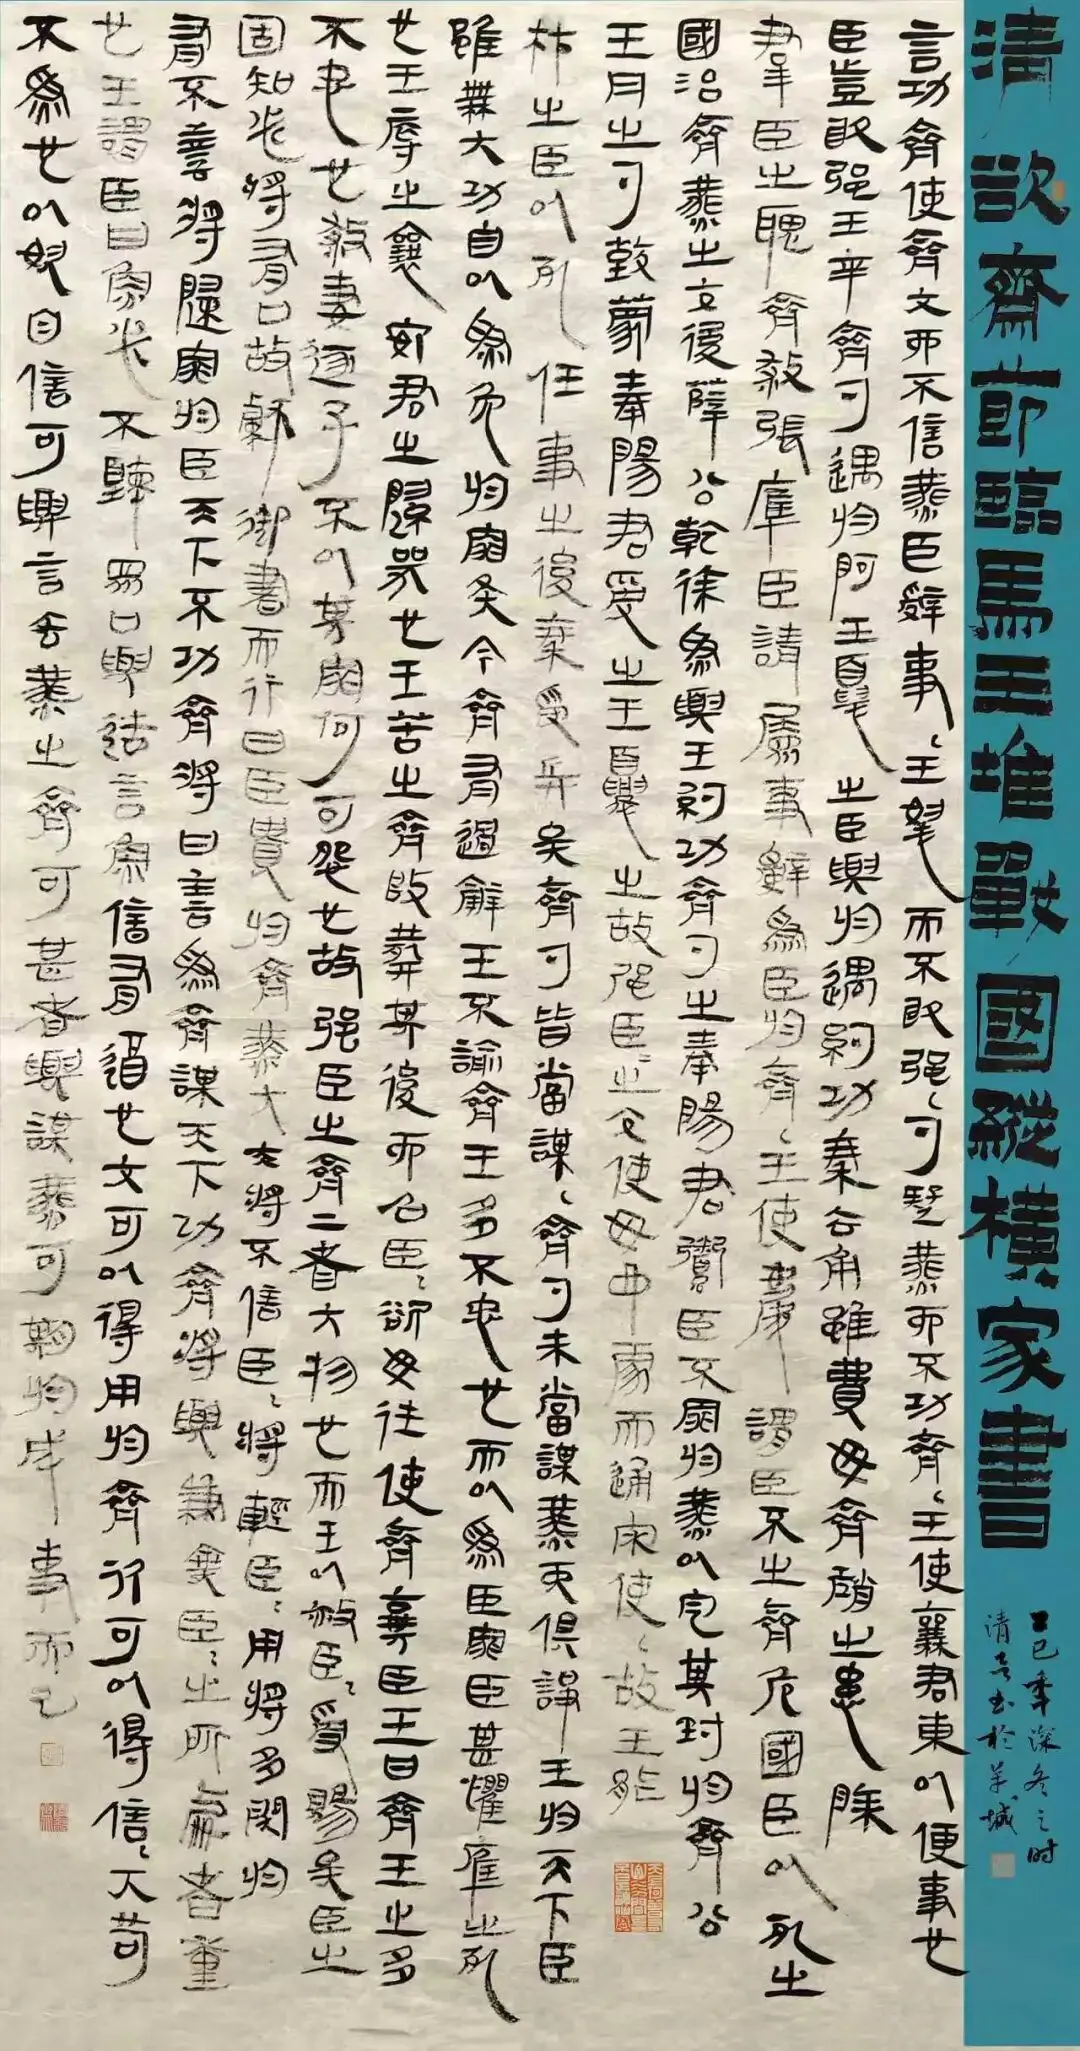 清歆齋節臨馬王堆戰國縱橫家書
乙巳年深冬之時
清音書於羊城
言功齊使齊大而不信燕臣辭事王怒而不敢強勺疑燕而不功齊王使襄君東以便事也
臣豈敢強王齊勺遇於阿王憂之臣與於遇約功秦去帝雖費毋齊趙之患除
羣臣之醜齊殺張庫臣請屬事辭爲臣於齊王使慶謂臣不之齊危國臣以死之
國治齊燕之交後薛公乾徐爲與王約功齊勺之奉陽君鬻臣不罪於燕以定其封於齊公
王月之勺致蒙奉陽君受之王憂之故強臣之齊使毋中處而通宋使故王能
材之臣以死任事之後秦受兵矣齊勺皆嘗謀齊勺未嘗謀燕而俱諍王於天下臣
雖無大功自以爲免於罪矣今齊有過辭王不諭齊王多不忠也而以爲臣罪臣甚懼庫之死
也王辱之襄安君之歸哭也王苦之齊改葬其後而召臣欲毋往使齊棄臣王曰齊王之多
不忠也殺妻逐子不以其罪何可怨也故強臣之齊二者大物也而王以赦臣受賜矣臣之
固知必將有口故獻御書而行曰臣貴於齊燕大夫將不信臣將輕臣用將多於
有不善將歸罪於臣天下不功齊將曰善爲齊謀天下功齊將與兼棄臣之所處者重
也王謂臣曰魚必不聽眾口與造言魚信有也大可以得用於齊次可以得信下苟
不爲也以奴自信可與言去燕之齊可甚者與謀燕可期於成事而已